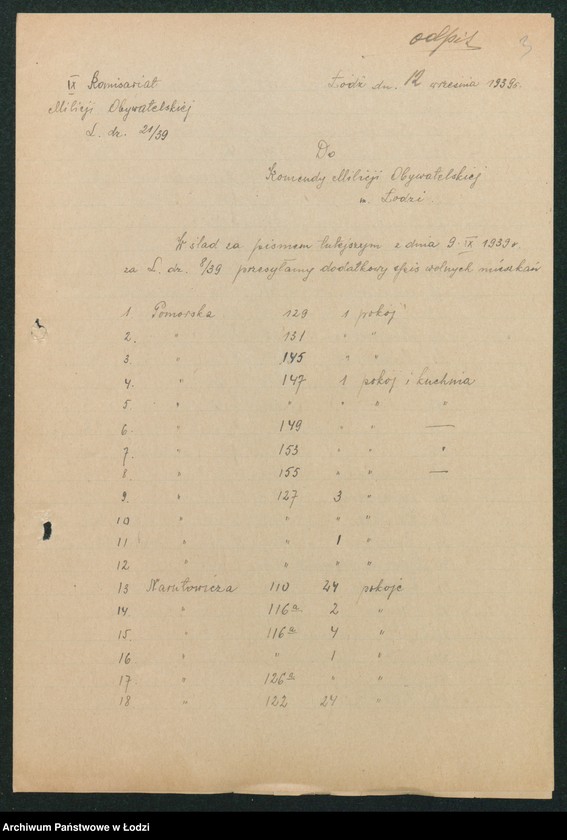 odpis 3
IX Komisariat Łódź dn. 12 września 1939r.
Milicji Obywatelskiej
L. dz. 21/39
Do
Komendy Milicji Obywatelskiej
w Łodzi.
W ślad za pismem tutejszym z dnia 9 IX 1939r.
za L. dz. 8/39 przesyłamy dodatkowy spis wolnych mieszkań
1 Pomorska 129 1 pokój
2. " 131 " "
3. " 145 " "
4. " 147 1 pokój i kuchnia
5 " " " " "
6. " 149 " " —
7. " 153 " " "
8. " 155 " " —
9. " 127 3 "
10 " " " "
11 " " 1 "
12 " " " "
13 Narutowicza 110 24 pokoje
14 " 116a 2 "
15. " 116a 4 "
16 " " 1 "
17 " 126a " "
18 " 122 24 "
Archiwum Państwowe w Łodzi